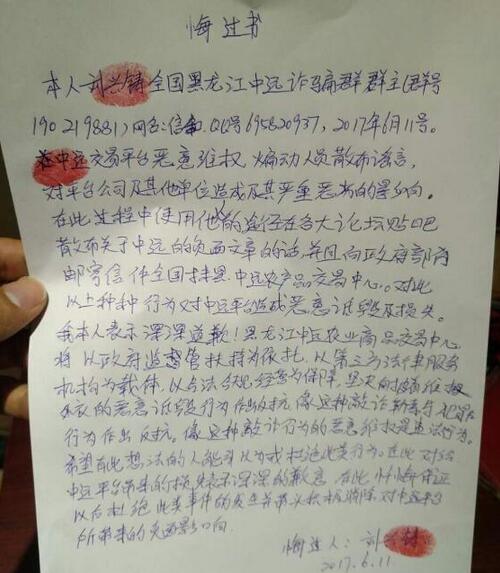 悔过书
本人刘兴铸全国黑龙江中远诈骗群群主(群号
190219881)网名:信和.QQ号695820937,2017年6月11号。
在中远交易平台恶意维权,煽动人员散布谣言,
对平台公司及其他单位造成及其严重恶劣的影响。
在此过程中使用他的途径在各大论坛贴吧
散布关于中远的负面文章的话,并且向政府部门
邮寄信件全国抹黑.中远农产品交易中心。对此
以上种种行为对中远平台造成恶意诋毁及损失。
我本人表示深深道歉!黑龙江中远农业商品交易中心
将以政府监督管扶持为依托,以第三方法律服务
机构为载体,以合法合规经营为保障,坚决向披着维权
外衣的恶意诋毁行为作出反抗,像这种敲诈勒索犯罪
行为作出反抗。像这种敲诈行为的恶意维权是违法行为。
希望有此想法的人能引以为戒杜绝此类行为在此对
中远平台带来的损失表示深深的歉意 在此忏悔保证
以后杜绝此类事件的发生并带头积极消除对中远平台
所带来的负面影响.
悔过人:刘兴铸
2017.6.11